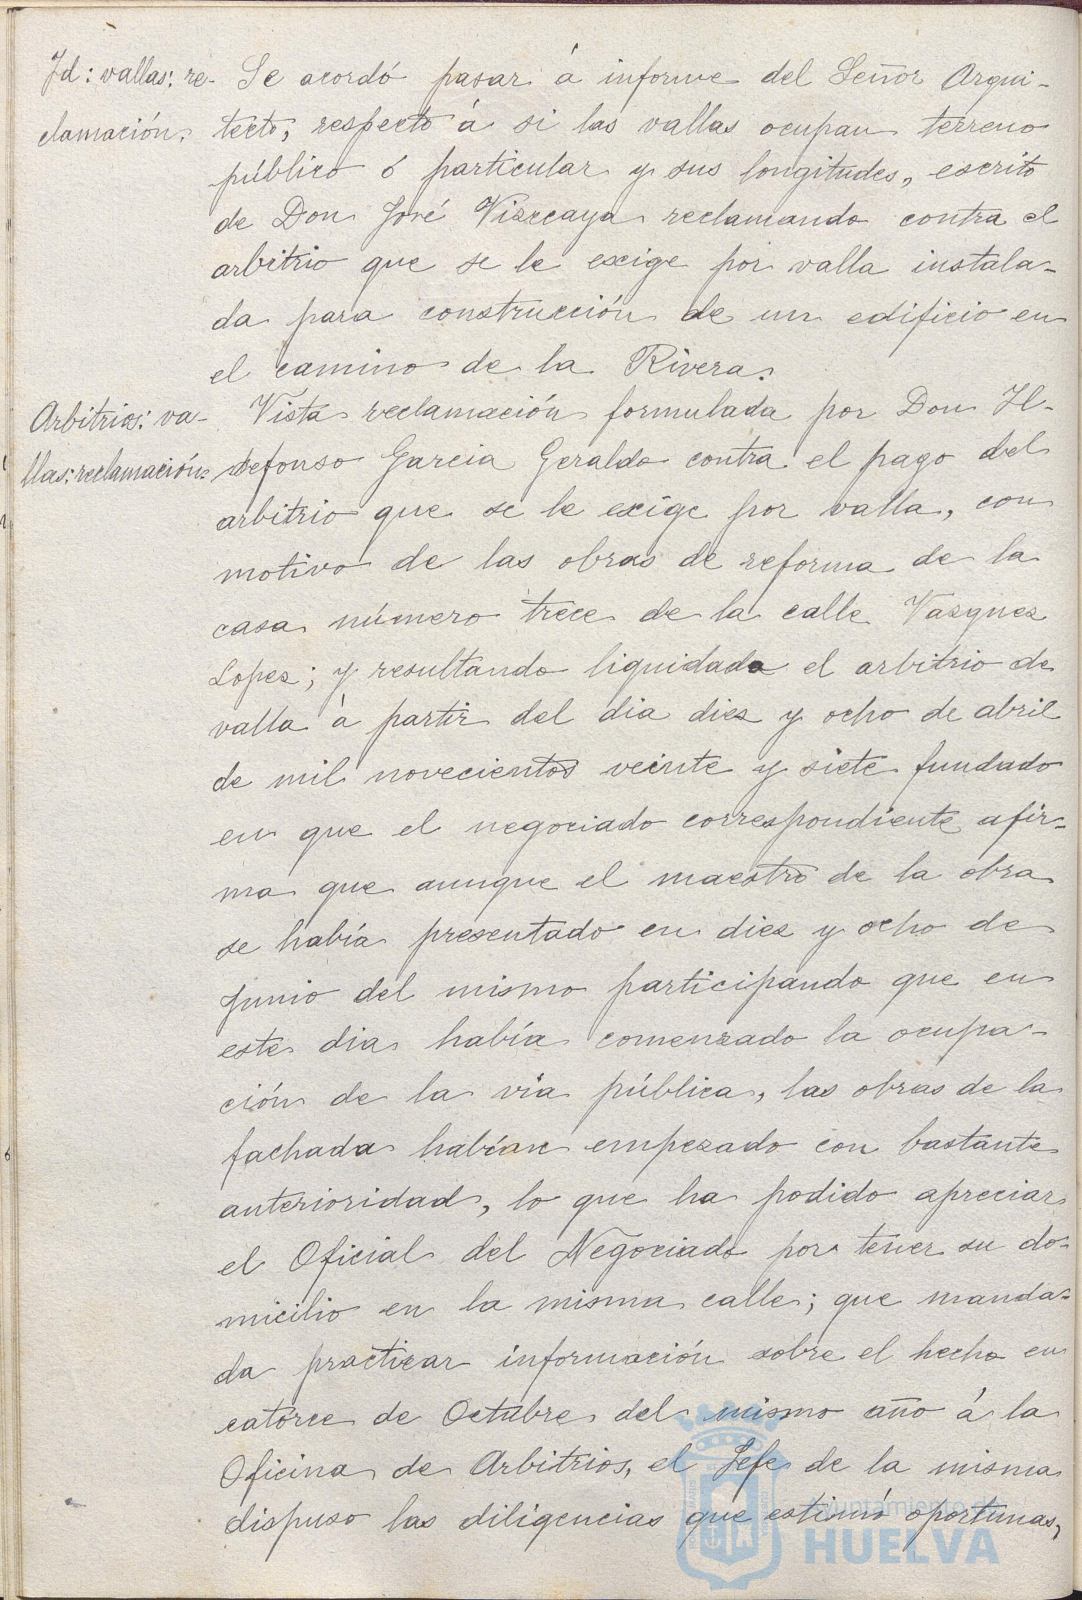 Id: vallas: re-
clamación.
Se acordó pasar á informe del Señor Arqui-
tecto, respecto á si las vallas ocupan terreno
público ó particular y sus longitudes, escrito
de Don José Vizccaya reclamando contra el
arbitrio que se le exige por valla instala-
da para construcción de un edificio en
el camino de la Rivera.
Arbitrios: va-
llas: reclamación=
Vista reclamación formulada por Don Il-
defonso Garcia Geraldo contra el pago del
arbitrio que se le exige por valla, con
motivo de las obras de reforma de la
casa número trece de la calle Vazquez
Lopez; y resultando liquidado el arbitrio de
valla á partir del dia diez y ocho de abril
de mil novecientos veinte y siete fundado
en que el negociado correspondiente afir-
ma que aunque el maestro de la obra
se había presentado en diez y ocho de
Junio del mismo participando que en
este dia había comenzado la ocupa-
ción de la vía pública, las obras de la
fachada habían empezado con bastante
anterioridad, lo que ha podido apreciar
el Oficial del Negociado por tener su do-
micilio en la misma calle; que manda-
da practicar información sobre el hecho en
catorce de Octubre del mismo año á la
Oficina de Arbitrios, el Jefe de la misma
dispuso las diligencias que estimó oportunas,
Ayuntamiento de
HUELVA